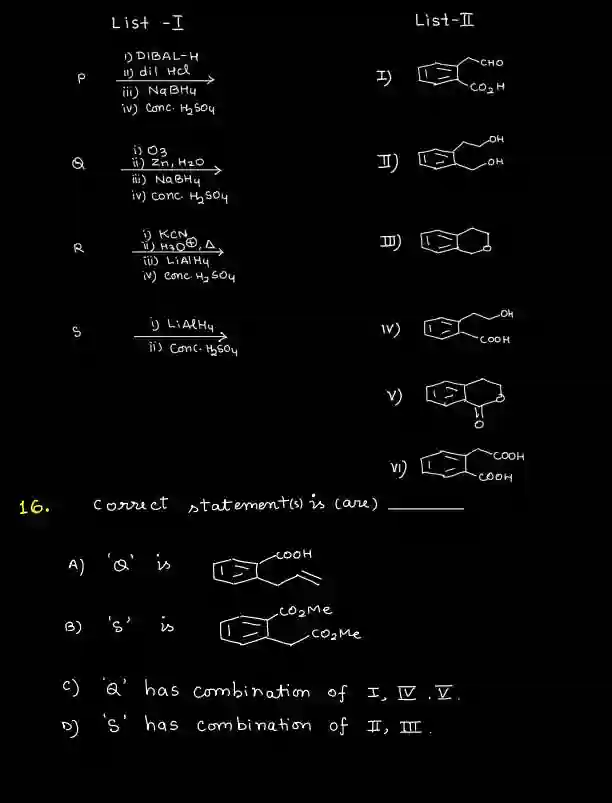 List -I List-II
P i) DIBAL-H
ii) dil HCl
iii) NaBH4
iv) Conc. H2SO4
I) CHO
CO2H
Q i) O3
ii) Zn, H2O
iii) NaBH4
iv) Conc. H2SO4
II) OH
OH
R i) KCN
ii) H3O⊕, Δ
iii) LiAlH4
iv) Conc. H2SO4
III) O
S i) LiAlH4
ii) Conc. H2SO4
IV) OH
COOH
V) O
O
VI) COOH
COOH
16. Correct statement(s) is (are) ______
A) 'Q' is COOH
B) 'S' is CO2Me
CO2Me
C) 'Q' has combination of I, IV, V.
D) 'S' has combination of II, III.